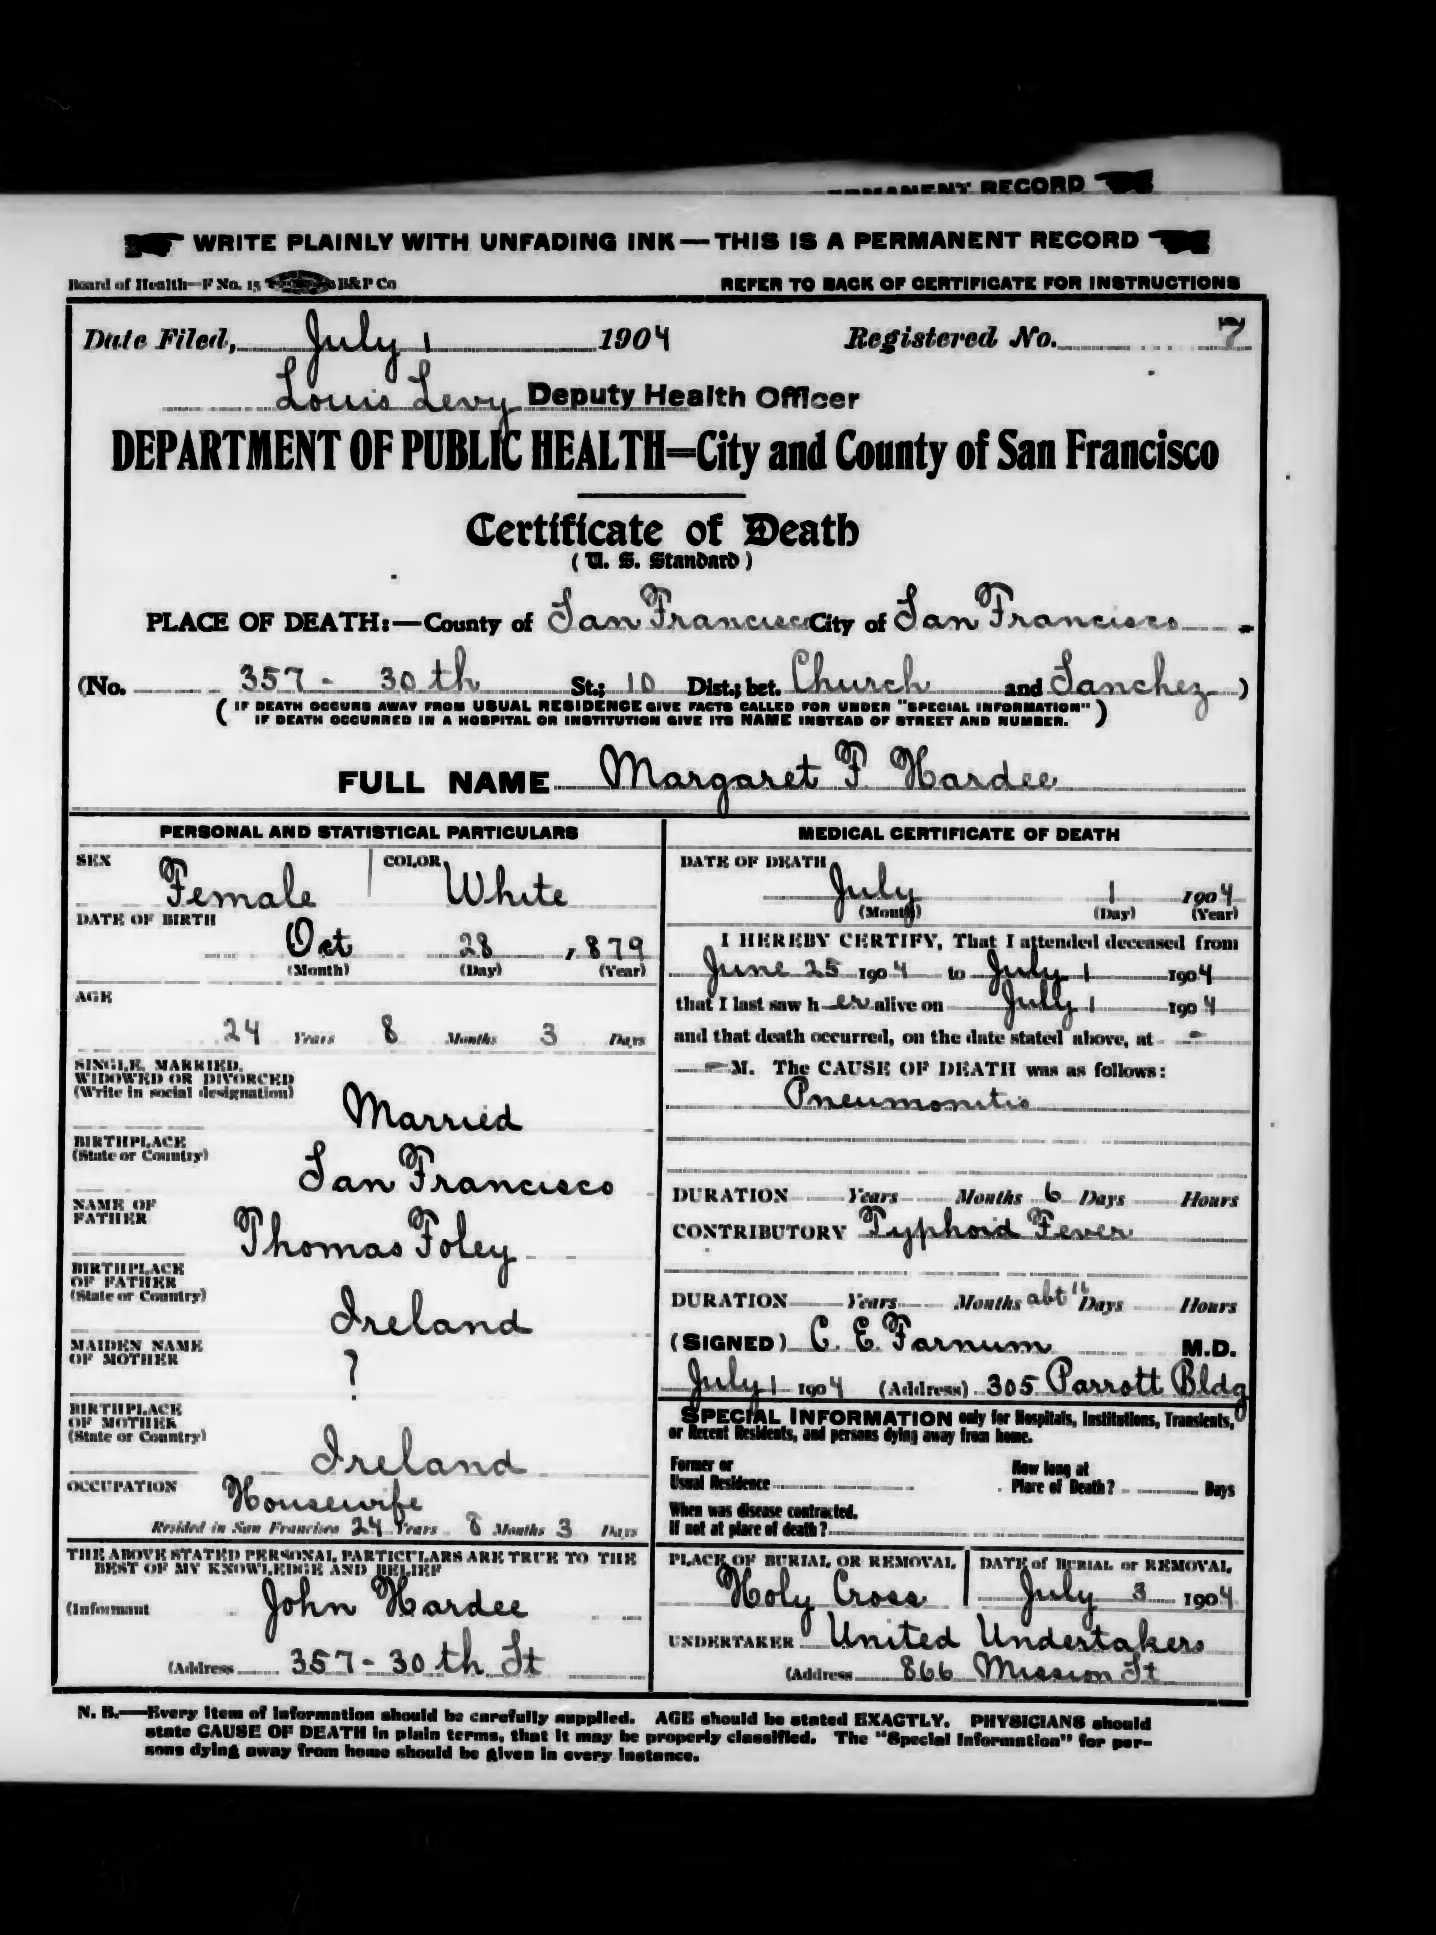 RMANENT RECORD
WRITE PLAINLY WITH UNFADING INK—THIS IS A PERMANENT RECORD
Board of Health—F No. 15 B&P Co
REFER TO BACK OF CERTIFICATE FOR INSTRUCTIONS
Date Filed, July 1 1904 Registered No. 7
Louis Levy Deputy Health Officer
DEPARTMENT OF PUBLIC HEALTH=City and County of San Francisco
Certificate of Death
(U. S. Standard)
PLACE OF DEATH:—County of San Francisco City of San Francisco
(No. 357 - 30th St.; 10 Dist.; bet. Church and Sanchez )
( IF DEATH OCCURS AWAY FROM USUAL RESIDENCE GIVE FACTS CALLED FOR UNDER "SPECIAL INFORMATION"
IF DEATH OCCURRED IN A HOSPITAL OR INSTITUTION GIVE ITS NAME INSTEAD OF STREET AND NUMBER. )
FULL NAME Margaret F Hardee
PERSONAL AND STATISTICAL PARTICULARS
SEX Female COLOR White
DATE OF BIRTH
Oct 28 , 879
(Month) (Day) (Year)
AGE
24 Years 8 Months 3 Days
SINGLE, MARRIED,
WIDOWED OR DIVORCED
(Write in social designation)
Married
BIRTHPLACE
(State or Country)
San Francisco
NAME OF
FATHER
Thomas Foley
BIRTHPLACE
OF FATHER
(State or Country)
Ireland
MAIDEN NAME
OF MOTHER
?
BIRTHPLACE
OF MOTHER
(State or Country)
Ireland
OCCUPATION
Housewife
Resided in San Francisco 24 Years 8 Months 3 Days
THE ABOVE STATED PERSONAL PARTICULARS ARE TRUE TO THE
BEST OF MY KNOWLEDGE AND BELIEF
(Informant John Hardee
(Address 357 - 30th St
MEDICAL CERTIFICATE OF DEATH
DATE OF DEATH
July 1 1904
(Month) (Day) (Year)
I HEREBY CERTIFY, That I attended deceased from
June 25 1904 to July 1 1904
that I last saw her alive on July 1 1904
and that death occurred, on the date stated above, at -
- M. The CAUSE OF DEATH was as follows:
Pneumonitis
DURATION Years Months 6 Days Hours
CONTRIBUTORY Typhoid Fever
DURATION Years Months abt 11 Days Hours
(SIGNED) C. E. Farnum M.D.
July 1 1904 (Address) 305 Parrott Bldg
SPECIAL INFORMATION only for Hospitals, Institutions, Transients,
or Recent Residents, and persons dying away from home.
Former or
Usual Residence
How long at
Place of Death? Days
When was disease contracted,
If not at place of death?
PLACE OF BURIAL OR REMOVAL
Holy Cross
DATE of BURIAL or REMOVAL
July 3 1904
UNDERTAKER United Undertakers
(Address 866 Mission St
N. B.—Every item of information should be carefully supplied. AGE should be stated EXACTLY. PHYSICIANS should
state CAUSE OF DEATH in plain terms, that it may be properly classified. The "Special Information" for per-
sons dying away from home should be given in every instance.